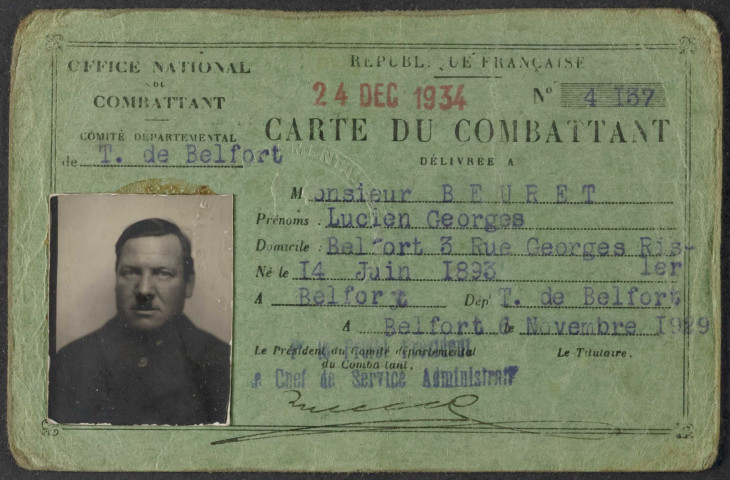 OFFICE NATIONAL
DU
COMBATTANT
COMITÉ DÉPARTEMENTAL
de T. de Belfort
RÉPUBLIQUE FRANÇAISE
24 DEC 1934
N° 4 137
CARTE DU COMBATTANT
DÉLIVRÉE A
Monsieur BEURET
Prénoms : Lucien Georges
Domicile : Belfort 3 Rue Georges Ris-
ler
Né le 14 Juin 1893
A Belfort Dép' T. de Belfort
A Belfort 6 le Novembre 1929
Le Président du Comité départemental
du Combattant,
Le Titulaire,
Président
Le Chef de Service Administratif